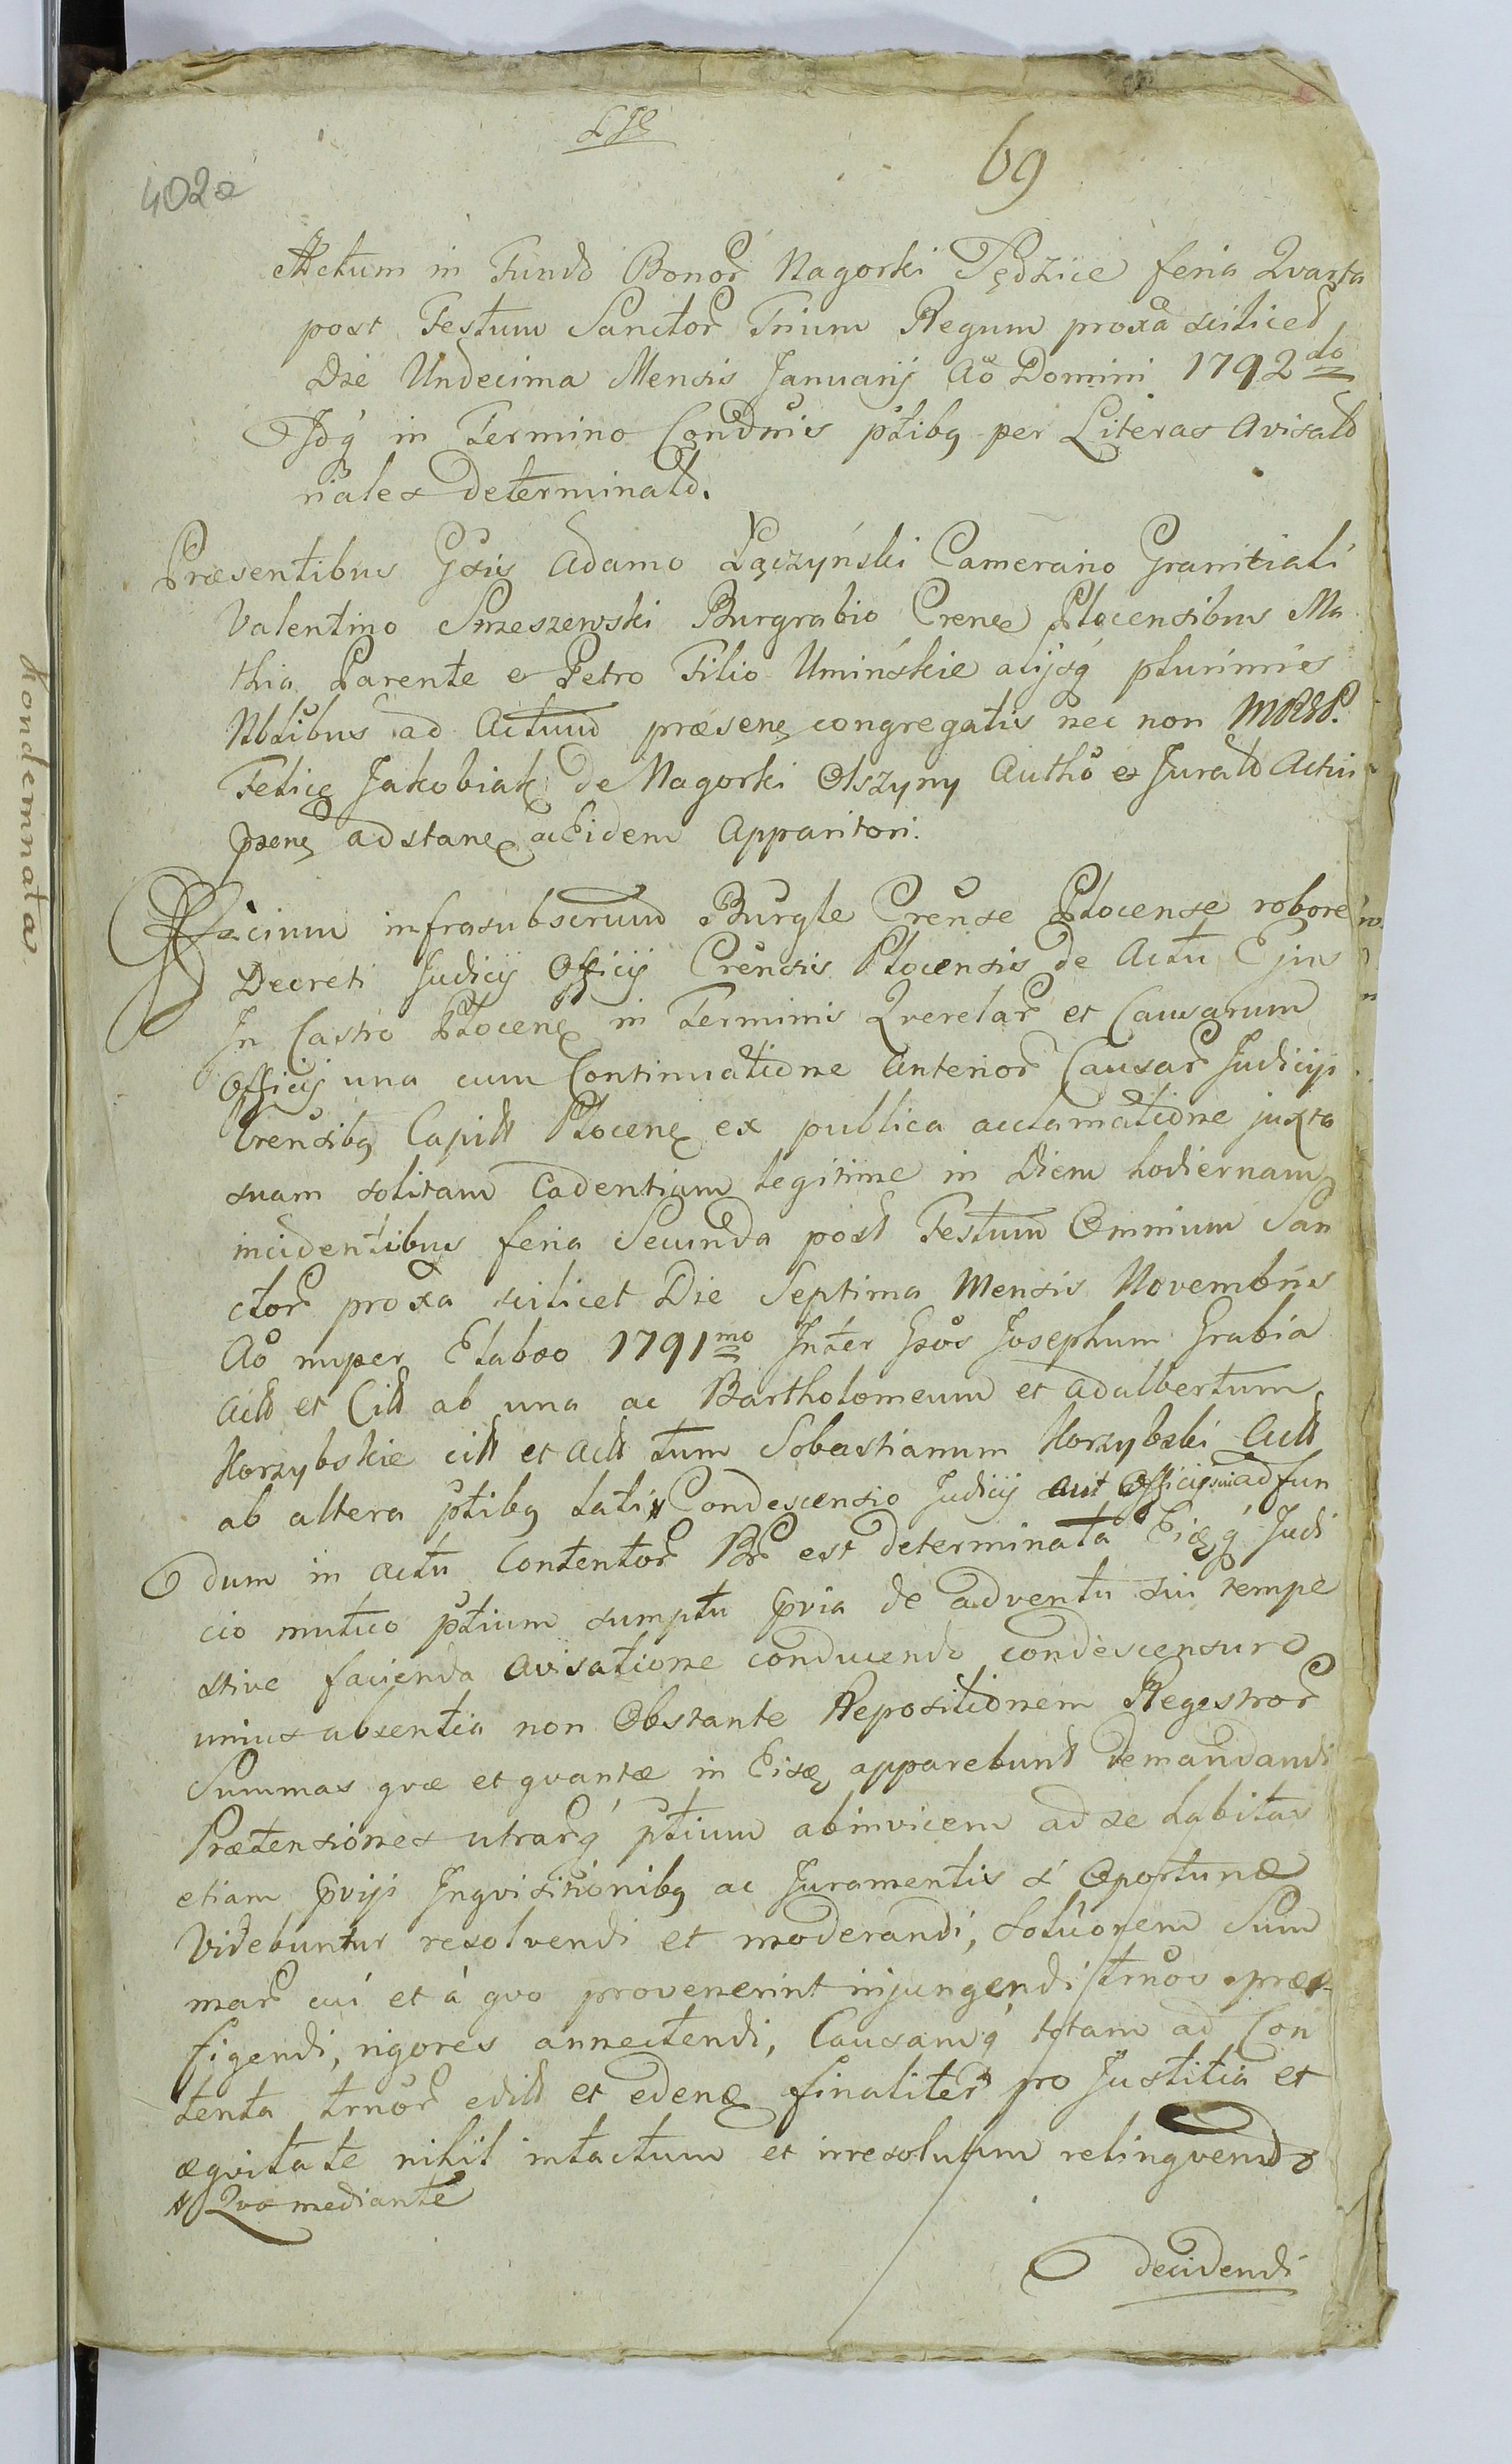 69
402a
Actum in Fundo Bonor̃ Nagorki Pędzice feria Qvarta
post Festum Sanctor̃ Trium Regum proxa scilicet
Die Undecima Mensis Januarij Aõ Domini 1792do
Idq́ in Termino Condnis ptibq per Literas Avisatõ
riales determinatõ.
Præsentibus Gxis Adamo Łączyński Camerario Granitiali
Valentino Smeszewski Burgrabio Crene Plocensibus Ma
thia Parente et Petro Filio Umińskie alijsq́ plurimis
Nblibus ad Actum præsens congregatis nec non
Felice Jakobiak de Nagorki Olszyny Autho et Jurato Actui
pxens adstane acEidem Apparitori.
Officium infrasubscrum Burgle Crense Plocense robore
Decreti Judicij Officij Crensis Plocensis de Actu Ejus
In Castro Plocens in Terminis Qverelar̃ et Causarum
Officij una cum Continuatione Anterior̃ Causar̃ Judicijs
Crensibq Capitł Plocens ex publica acclamatione juxta
suam solitam Cadentiam legitime in Diem hodiernam
incidentibus feria Secunda post Festum Omnium San
ctor̃ proxa scilicet Die Septima Mensis Novembris
Aõ nuper Elabso 1791mo Inter Gxos Josephum Grabia
Actł et Citł ab una ac Bartholomeum et Adalbertum
Korzybskie citł et actł tum Sobastianum Korzybski Actł
ab altera ptibq lati # Condescensio Judicij sui Officijsui ad fun
dum in actu Contentor̃ Br̃ est determinata Eisq́ Judi
cio mutuo ptium sumptu pvia de adventu sui tempe
stive facienda avisatione conducendo condescensuro
unius absentia non Obstante Repositionem Regestror̃
Summas qvæ et qvantæ in Eisq apparebunt demandandi
Prætensiones utrarq́ ptium abinvicem ad se habitas
etiam pvijs Inqvisitionibq ac Juramentis si Oportunæ
Videbuntur resolvendi et moderandi, Soluonem Sum
mar̃ cui et à qvo provenerint injungendi trnos præ-
figendi, rigores annectendi, Causamq́ totam ad Con
tenta trnor̃ editł et edens finaliter pro Justitia et
æqvitate nihil intactum et irresolutum relinqvendo
# Qvo mediante
decidendi
Kondemnata